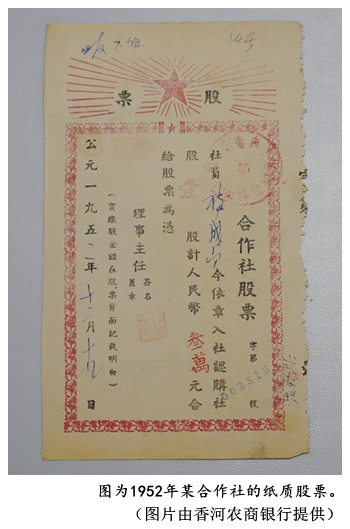 14号
股票
合作社股票
字第 号
003313
社員 今依章入社認購社
股 壹 股計人民幣 叁萬 元合
給股票為憑
理事主任 簽名
蓋章
(實繳股金額在股票背面記載明白)
公元一九五二年十二月 日
图为1952年某合作社的纸质股票。
(图片由香河农商银行提供)